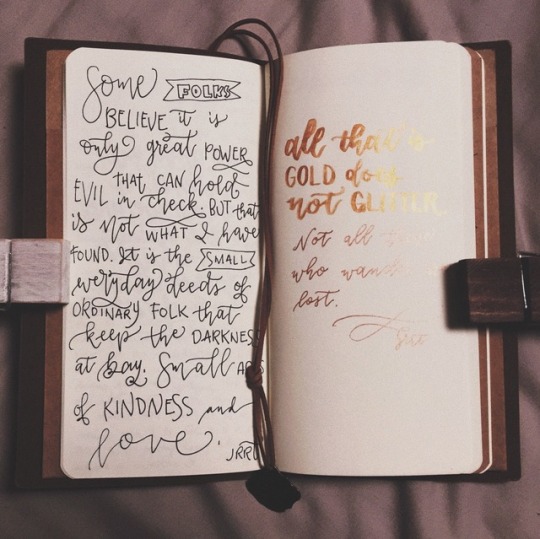 Some FOLKS
BELIEVE it is
only great POWER
THAT CAN hold
EVIL in check. BUT that
is not WHAT I have
FOUND. It is the SMALL
everyday deeds of
ORDINARY FOLK that
keep the DARKNESS
at bay. Small
of KINDNESS and
love.
JRRT
all that is
GOLD does
not GLITTER
Not all
who
lost.